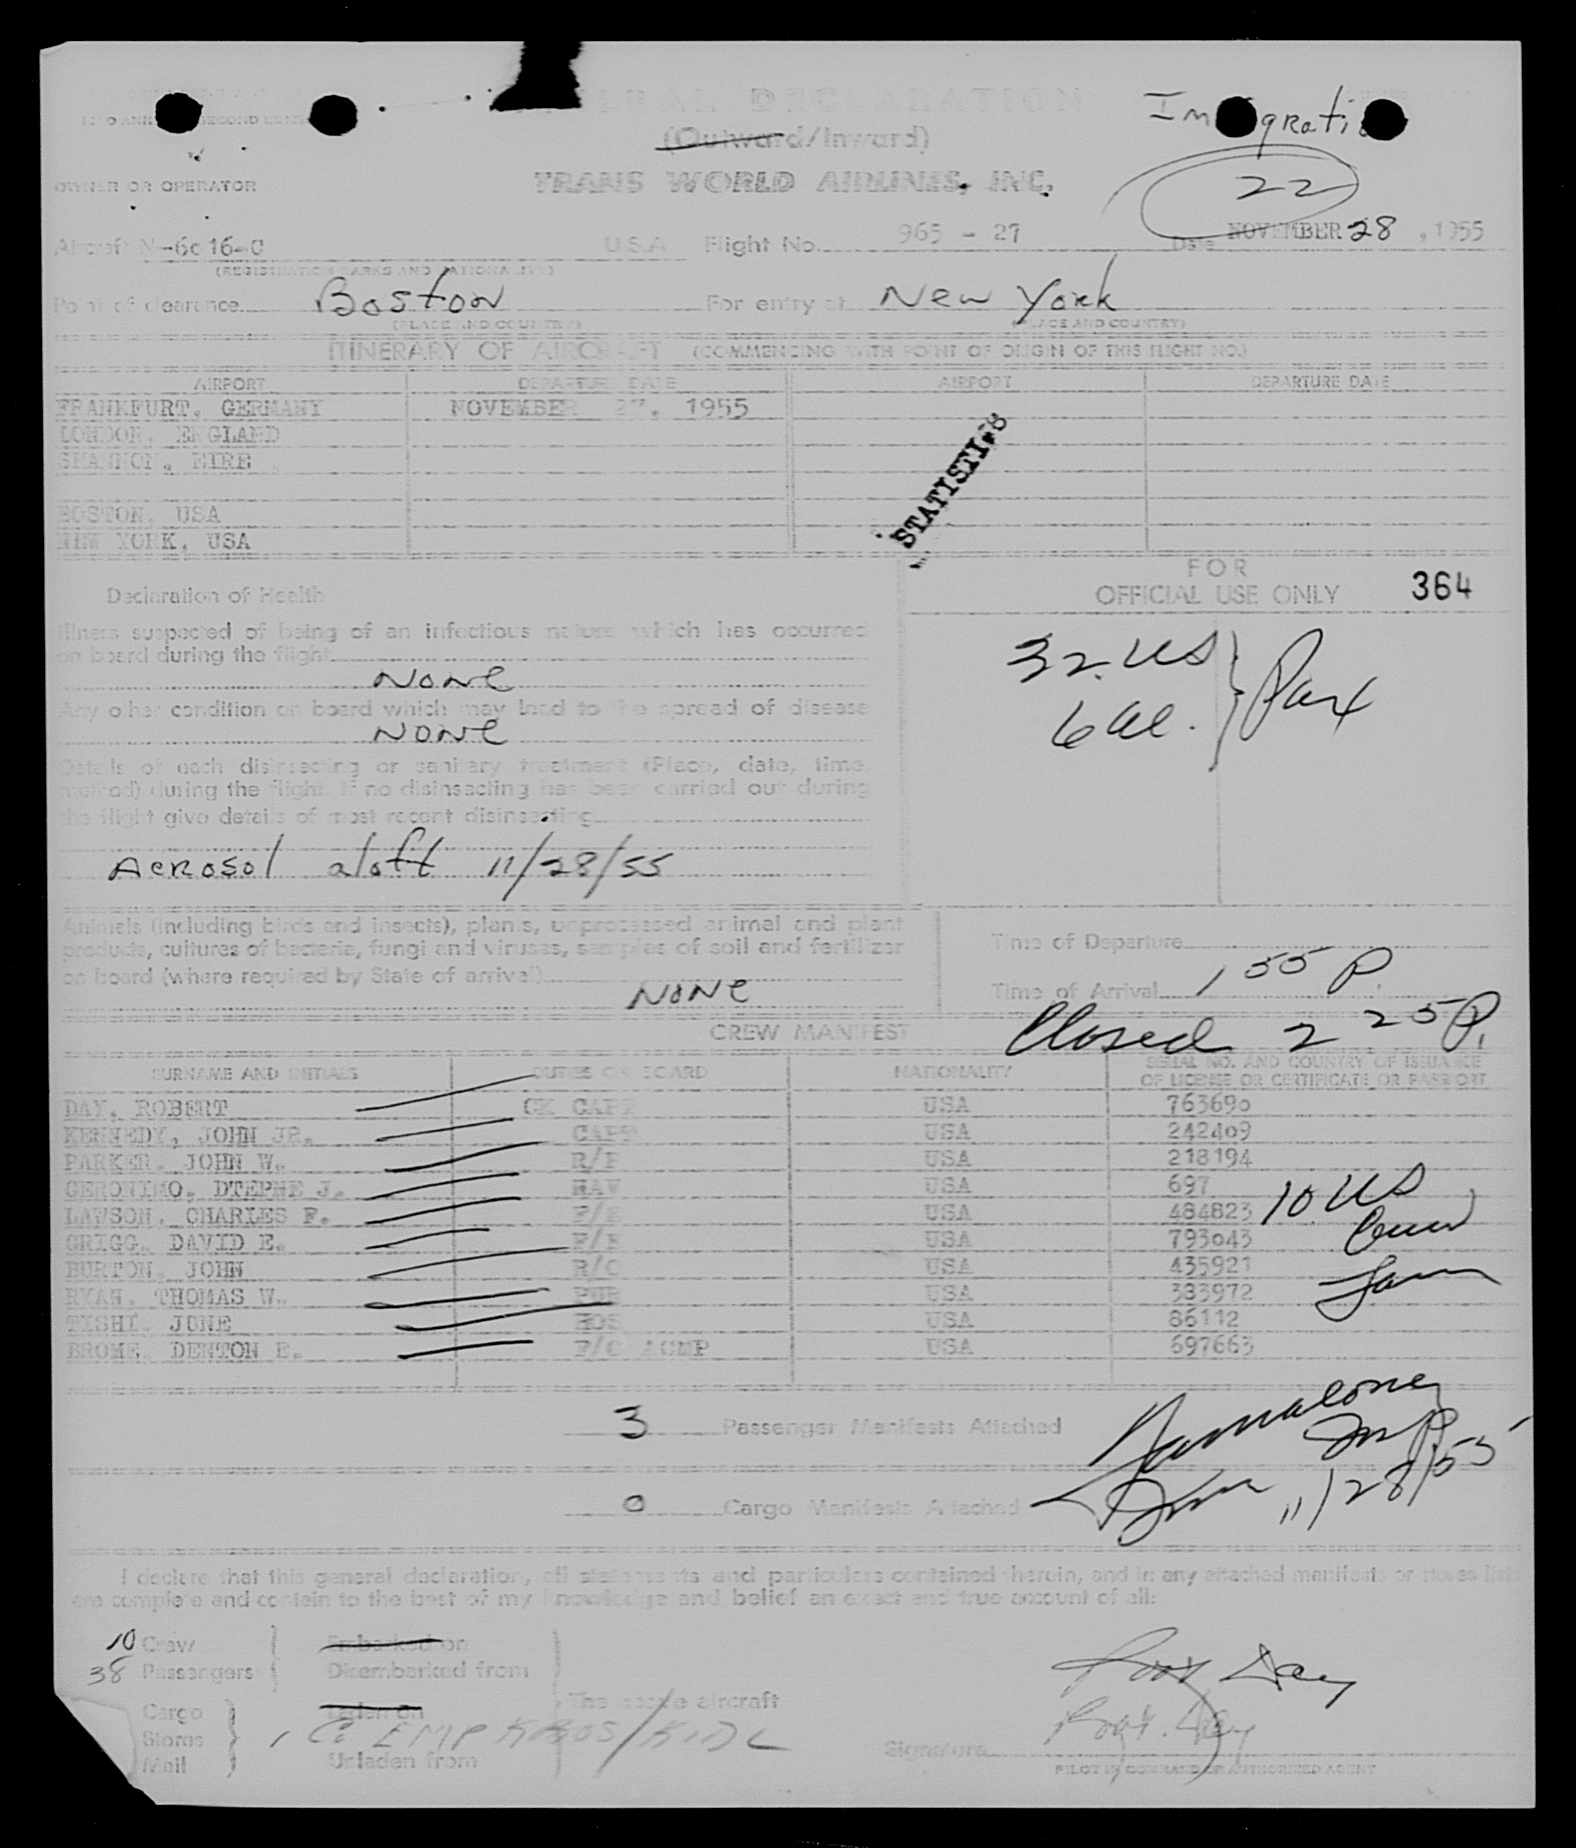 DECLARATION
(Outward/Inward)
22
OWNER OR OPERATOR
TRANS WORLD AIRLINES, INC.
Aircraft N-6c 16-C U S A Flight No. 965 - 27 Date NOVEMBER 28, 1955
(REGISTRATION MARKS AND NATIONALITY)
Point of clearance Boston For entry at New York
(PLACE AND COUNTRY) (PLACE AND COUNTRY)
ITINERARY OF AIRCRAFT (COMMENCING WITH POINT OF ORIGIN OF THIS FLIGHT NO.)
AIRPORT DEPARTURE DATE AIRPORT DEPARTURE DATE
FRANKFURT, GERMANY NOVEMBER 27, 1955
LONDON, ENGLAND
SHANNON, EIRE
BOSTON, USA
NEW YORK, USA
STATISTICS
FOR
OFFICIAL USE ONLY 364
Declaration of Health
Illness suspected of being of an infectious nature which has occurred
on board during the flight
None
Any other condition on board which may lead to the spread of disease
None
Details of each disinsecting or sanitary treatment (Place, date, time,
method) during the flight. If no disinsecting has been carried out during
the flight give details of most recent disinsecting
Aerosol aloft 11/28/55
32 US
6 al.
Pax
Animals (including birds and insects), plants, unprocessed animal and plant
products, cultures of bacteria, fungi and viruses, samples of soil and fertilizer
on board (where required by State of arrival)
None
Time of Departure
Time of Arrival 1 55 P.
Closed 2 25 P.
CREW MANIFEST
SURNAME AND INITIALS DUTIES ON BOARD NATIONALITY SERIAL NO. AND COUNTRY OF ISSUANCE
OF LICENSE OR CERTIFICATE OR PASSPORT
DAY, ROBERT CK CAPT USA 763690
KENNEDY, JOHN JR. CAPT USA 242409
PARKER, JOHN W. USA 218194
GERONIMO, DTEPHE J. NAV USA 697
LAWSON, CHARLES F. F/E USA 484823
GRIGG, DAVID E. F/E USA 793043
BURTON, JOHN R/O USA 435921
RYAN, THOMAS W. PUR USA 383972
TISHI, JUNE HOS USA 86112
BROME, DENTON E. F/O ACMP USA 697663
10 US
Crew
3 Passenger Manifests Attached
0 Cargo Manifests Attached
11/28/55
I declare that this general declaration, all statements and particulars contained therein, and in any attached manifests or stores lists
are complete and contain to the best of my knowledge and belief an exact and true account of all:
10 Crew Embarked on
38 Passengers Disembarked from
Cargo Laden on The above aircraft
Stores
Mail Unladen from
Signature
PILOT IN COMMAND OR AUTHORIZED AGENT